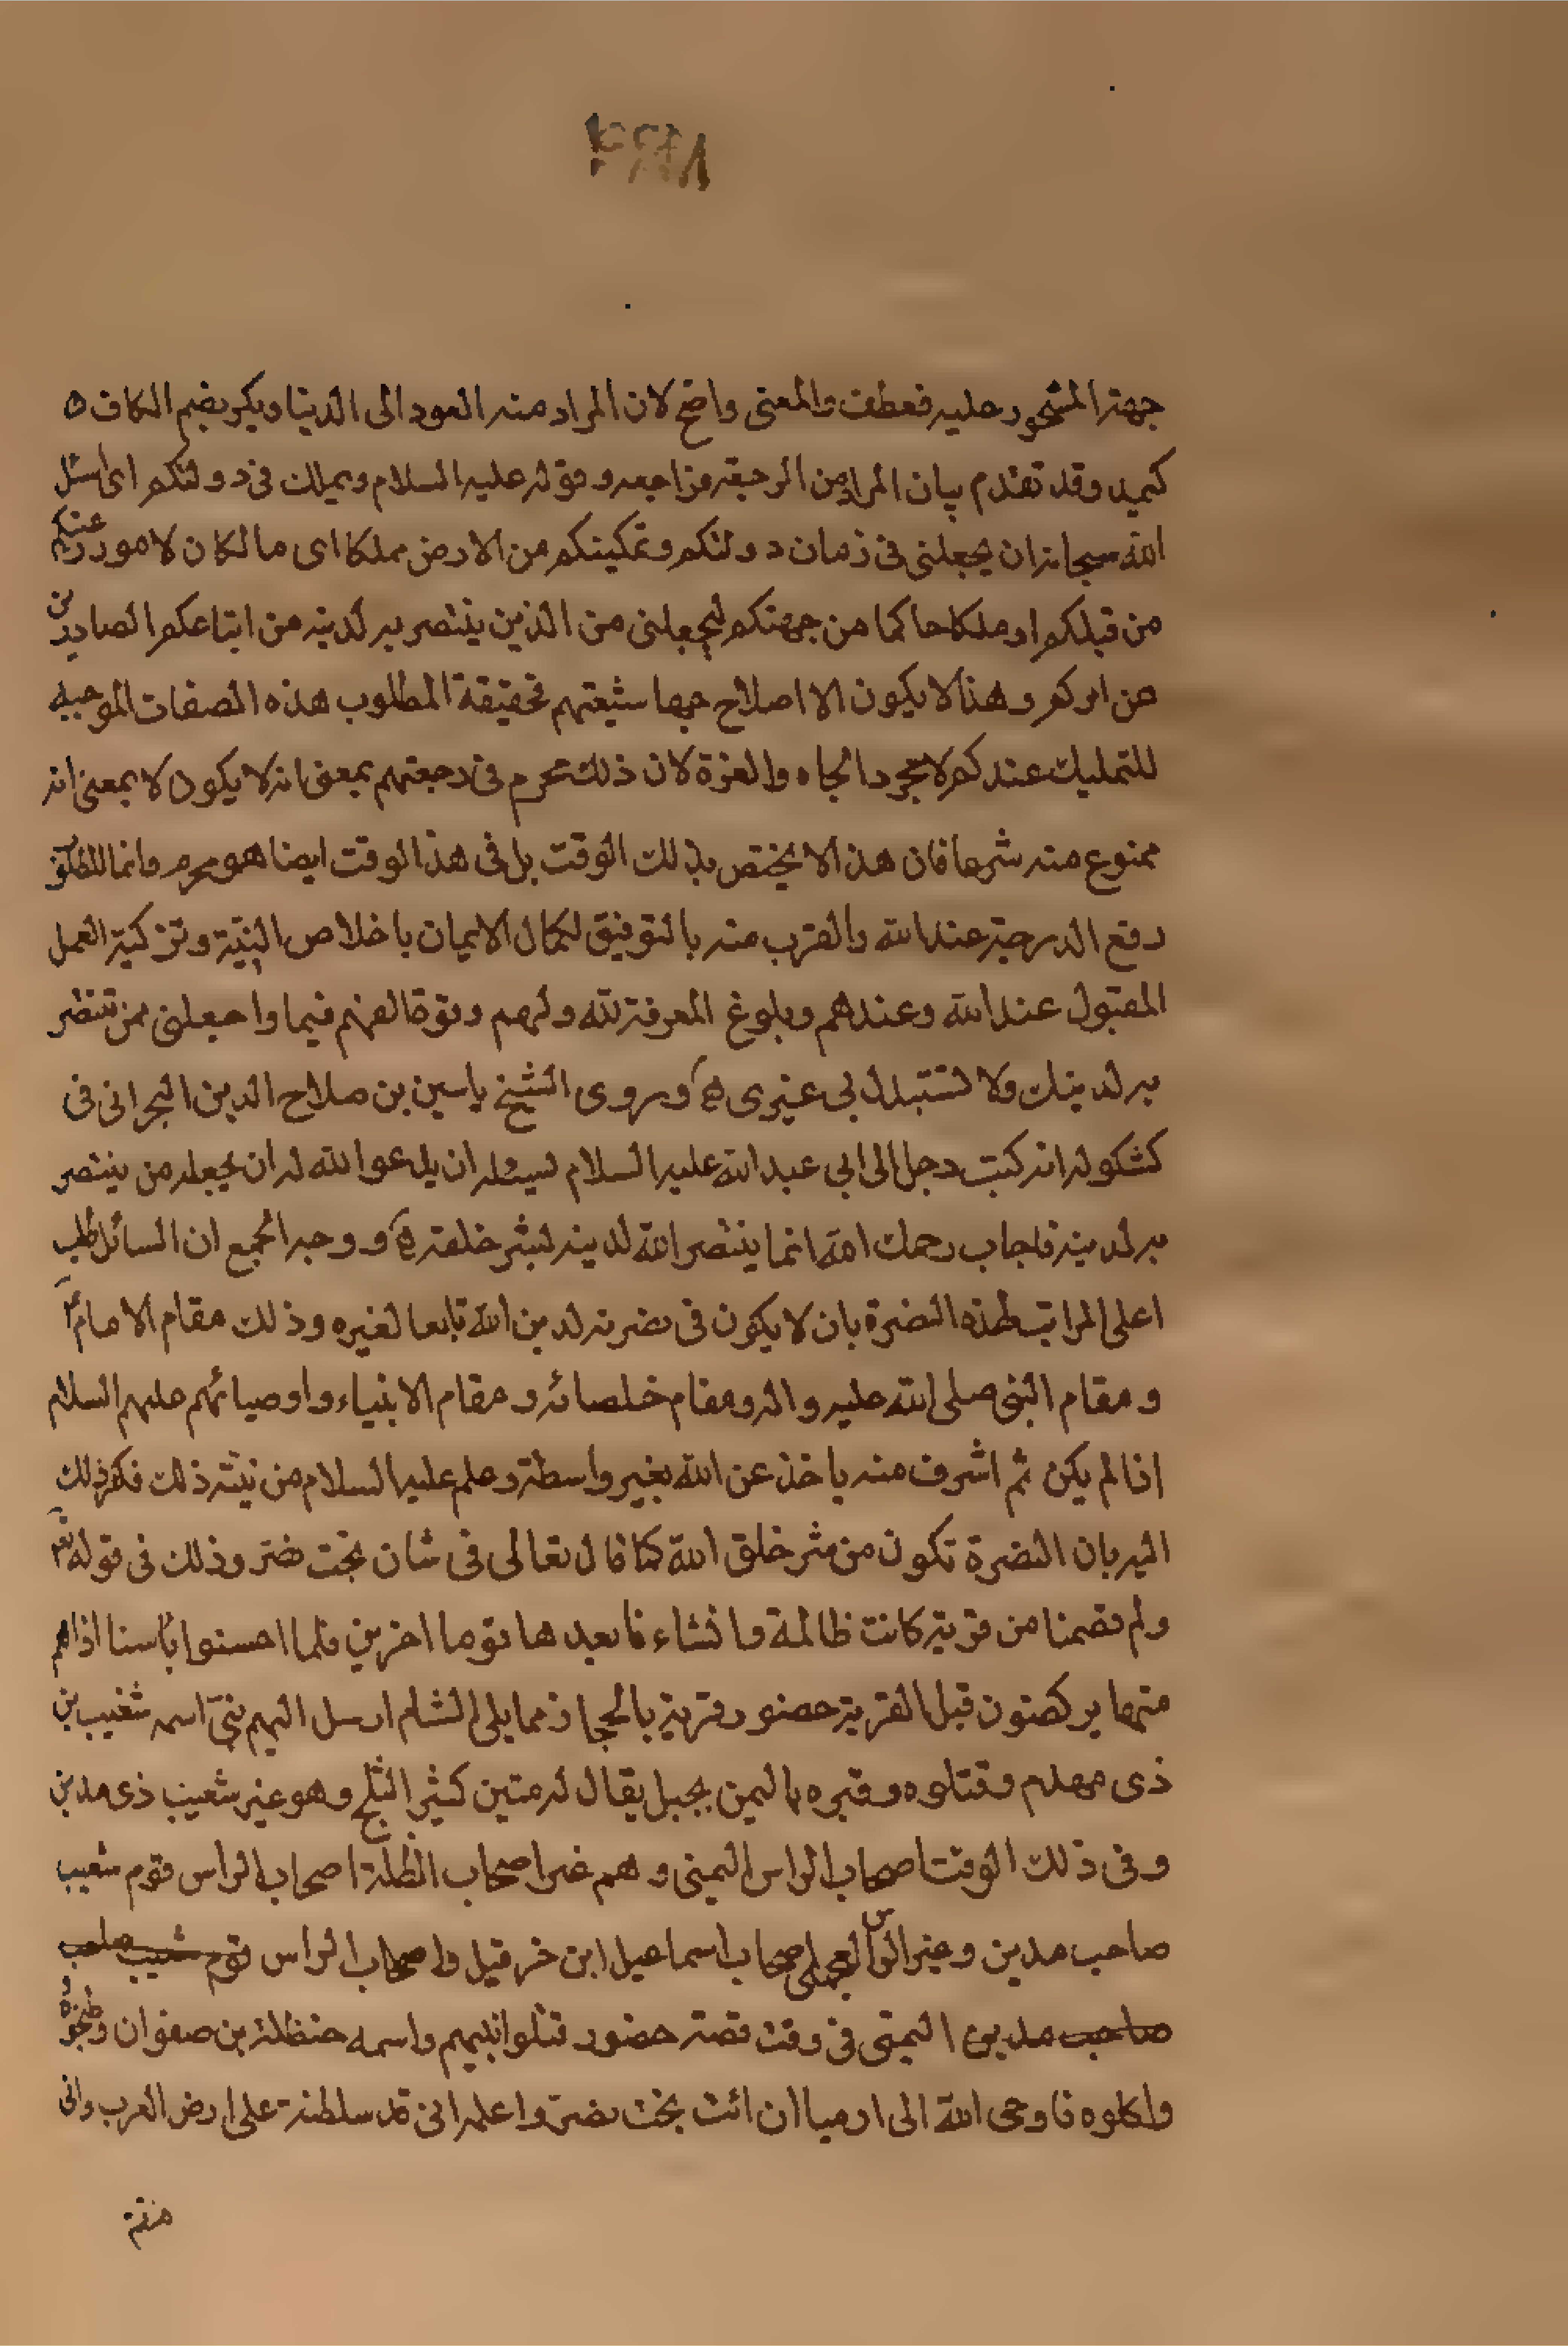 جهة المشهور عليه فعطفت والمعنى واضح لان المراد منه العود الى الدنيا ويكر بضم الكاف
كيمد وقد تقدم بيان المراد من الرجعة فراجعه وقوله عليه السلام ويملك فى دولتكم اى اسئل
الله سبحانه ان يجعلنى فى زمان دولتكم وتمكينكم من الارض مملكا اى مالكا لامور عنكم
من قبلكم او ملكا حاكما من جهتكم ليجعلنى من الذين ينتصر به لدينه من اتباعكم الصادرين
عن امركم وهذا لا يكون الا اصلاح جهة شيعتهم فحقيقة المطلوب هذه الصفات الموجبة
للتمليك عندكم لا مجرد الجاه والعزة لان ذلك محرم فى رجعتهم بمعنى انه لا يكون لا بمعنى انه
ممنوع منه شرعا فان هذا لا يختص بذلك الوقت بل فى هذا الوقت ايضا هو محرم وانما المطلوب
رفع الدرجة عند الله والقرب منه بالتوفيق لكمال الايمان باخلاص النية وتزكية العمل
المقبول عند الله وعندهم وبلوغ المعرفة لله ولهم وقوة الفهم فيما واجعلنى ممن تنتصر
به لدينك ولا تستبدل بى غيرى وروى الشيخ ياسين بن صلاح الدين البحرانى فى
كشكوله انه كتب رجل الى ابى عبد الله عليه السلام ليسئله ان يدعو الله له ان يجعله من ينتصر
به لدينه فاجاب رحمك الله انما ينتصر الله لدينه بشر خلقه ووجه الجمع ان السائل طلب
اعلى المراتب لهذه النصرة بان لا يكون فى نصرته لدين الله تابعا لغيره وذلك مقام الامام
ومقام النبى صلى الله عليه واله ومقام خلصائه ومقام الانبياء واوصيائهم عليهم السلام
اذا لم يكن ثم اشرف منه ياخذ عن الله بغير واسطة وعلم عليه السلام من نيته ذلك فكره ذلك
اليه بان النصرة تكون من شر خلق الله كما قال تعالى فى شان بخت نصر وذلك فى قوله
ولم قصمنا من قرية كانت ظالمة وانشاء نا بعدها قوما اخرين فلما احسوا باسنا اذا هم
منها يركضون قيل القرية حضور قرية بالحجاز مما يلى الشام ارسل اليهم نبى اسمه شعيب بن
ذى مهدم وقتلوه وقبره باليمن بجبل يقال له متين كثير الثلج وهو غير شعيب ذى مدين
وفى ذلك الوقت اصحاب الراس اليمنى وهم غير اصحاب الظلة اصحاب الراس قوم شعيب
صاحب مدين وغير الراس اصحاب اسماعيل ابن حزقيل واصحاب الراس قوم شعيب صاحب
صاحب مدين اليمنى فى وقت قصة حضور قتلوا نبيهم واسمه حنظلة بن صفوان
واكلوه فاوحى الله الى ارميا ان ائت بخت نصر واعلمه انى قد سلطته على ارض العرب وانى
منتقم